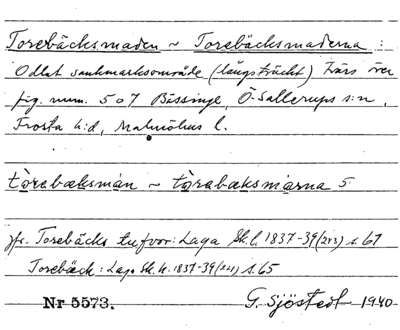 Torebäcksmaden ~ Torebäcksmaderna :
Odlat sankmarksområde (långsträckt) tvärs över
fig. num. 507 Bässinge, Ö. Sallerups s:n,
Frosta h:d, Malmöhus l.
tòrebæksmán ~ tòrabæksmàrna 5.
jfr. Torebäcks tufvor: Laga Sk. h. 1837-39 (243) s. 67
Torebäck: Laga Sk. h. 1837-39 s. 65
Nr 5573.
G. Sjöstedt 1940